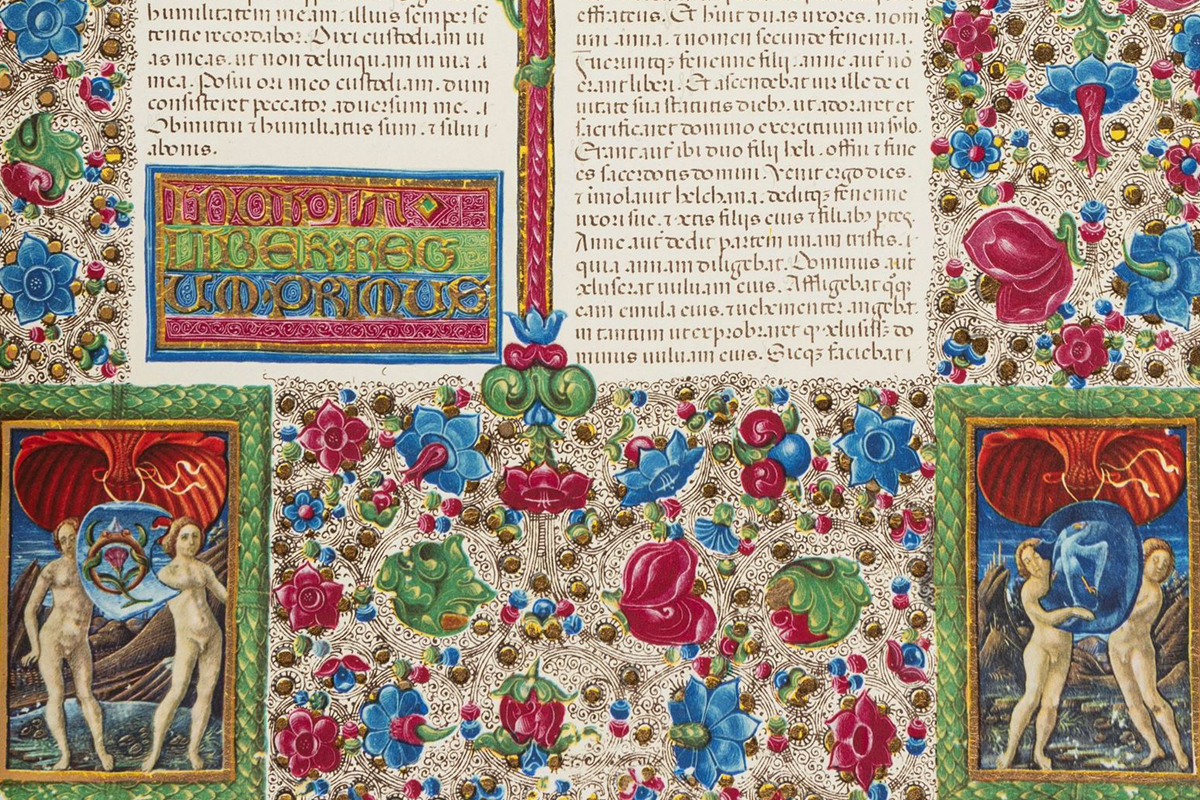 humilitatem meam. illius semper se
tentie recordabor. Dixi custodiam ui
as meas. ut non delinquam in uia
mea. Posui ori meo custodiam. dum
consisteret peccator aduersum me.
Obmutui ⁊ humiliatus sum. ⁊ silui
abonis.
INCIPIT
LIBER·REG
UM·PRIMUS
effrateus. Et huit duas uxores. nom
uni anna. ⁊ nomen secunde fenenna.
Fueruntqꝫ fenenne filij. anne aut̄ nō
erant liberi. Et ascendebat uir ille de ci
uitate sua statutis diebꝫ. ut adoraret et
sacrificaret domino exercituum in sylo.
Erant aut̄ ibi duo filij heli. offni ⁊ fine
es sacerdotis domini. Venit ergo dies.
⁊ imolauit helchana. deditqꝫ fenenne
uxori sue. ⁊ filijs eius ⁊ filiabꝫ
Anne aut̄ dedit partem unam tristis.
quia annam diligebat. Dominus aut̄
𝑐xluserat uuluam eius. Affligebat qꝫ
eam emula eius. ⁊ uehementer angebat.
in tantum ut exprobraret do
minus uuluam eius. Sicqꝫ faciebat